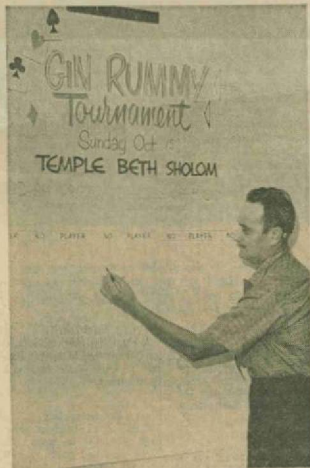 GIN RUMMY
Tournament
Sunday Oct
TEMPLE BETH SHOLOM
NO PLAYER NO PLAYER NO PLAYER NO